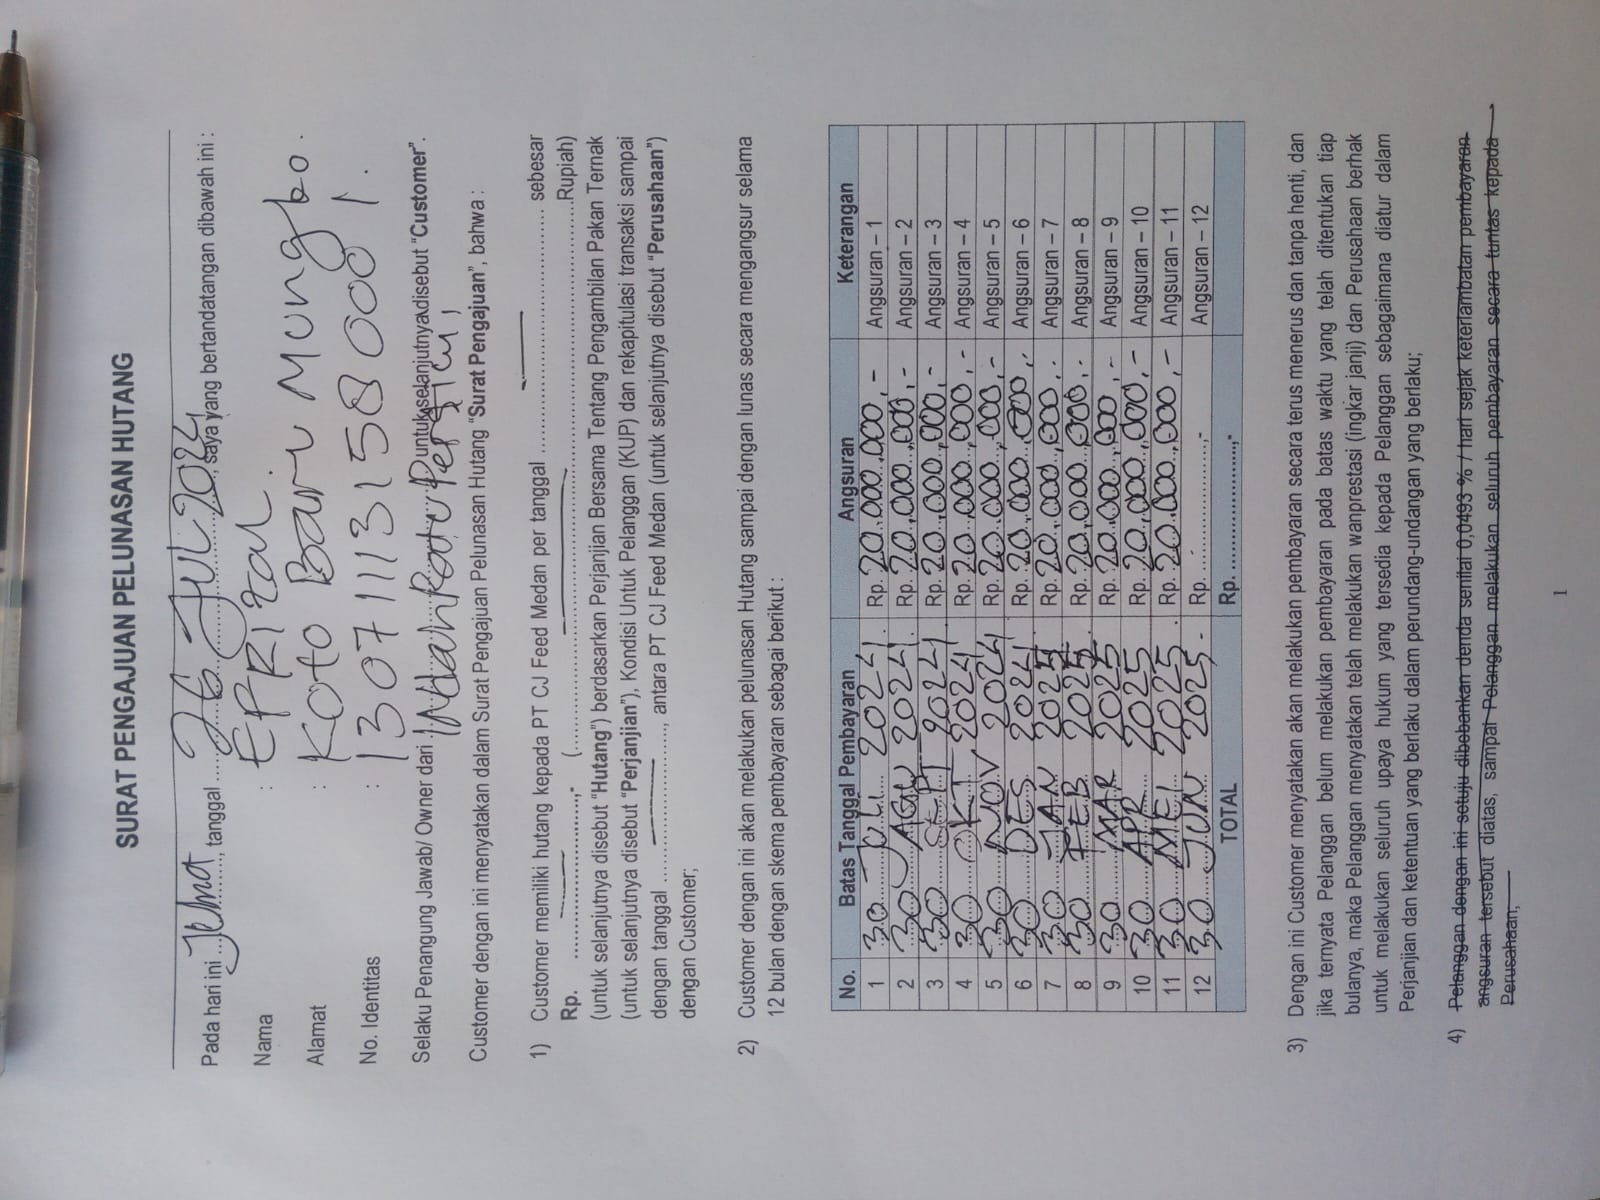 SURAT PENGAJUAN PELUNASAN HUTANG
Pada hari ini Jumat, tanggal 26 JUL 2024, saya yang bertandatangan dibawah ini :
Nama : EPRIzal
Alamat : Koto Baru Mungko.
No. Identitas : 1307111315580001.
Selaku Penangung Jawab/ Owner dari untuk selanjutnya disebut “Customer”.
Customer dengan ini menyatakan dalam Surat Pengajuan Pelunasan Hutang “Surat Pengajuan”, bahwa :
1) Customer memiliki hutang kepada PT CJ Feed Medan per tanggal .................... sebesar
Rp. ....................,- (........................................Rupiah)
(untuk selanjutnya disebut “Hutang”) berdasarkan Perjanjian Bersama Tentang Pengambilan Pakan Ternak
(untuk selanjutnya disebut “Perjanjian”), Kondisi Untuk Pelanggan (KUP) dan rekapitulasi transaksi sampai
dengan tanggal ...................., antara PT CJ Feed Medan (untuk selanjutnya disebut “Perusahaan”)
dengan Customer;
2) Customer dengan ini akan melakukan pelunasan Hutang sampai dengan lunas secara mengangsur selama
12 bulan dengan skema pembayaran sebagai berikut :
No. Batas Tanggal Pembayaran Angsuran Keterangan
1 30 JULI 2024. Rp. 20.000.000,- Angsuran – 1
2 30 AGU 2024. Rp. 20.000.000,- Angsuran – 2
3 30 SEPT 2024 Rp. 20.000.000,- Angsuran – 3
4 30 OKT 2024 Rp. 20.000.000,- Angsuran – 4
5 30 NOV 2024 Rp. 20.000.000,- Angsuran – 5
6 30 DES 2024. Rp. 20.000.000,- Angsuran – 6
7 30 JAN 2025 Rp. 20.000.000,- Angsuran – 7
8 30 FEB 2025 Rp. 20.000.000,- Angsuran – 8
9 30 MAR 2025 Rp. 20.000.000,- Angsuran – 9
10 30 APR 2025 Rp. 20.000.000,- Angsuran – 10
11 30 MEI 2025. Rp. 20.000.000,- Angsuran – 11
12 30 JUN 2025. Rp. ....................,- Angsuran – 12
TOTAL Rp. ....................,-
3) Dengan ini Customer menyatakan akan melakukan pembayaran secara terus menerus dan tanpa henti, dan
jika ternyata Pelanggan belum melakukan pembayaran pada batas waktu yang telah ditentukan tiap
bulanya, maka Pelanggan menyatakan telah melakukan wanprestasi (ingkar janji) dan Perusahaan berhak
untuk melakukan seluruh upaya hukum yang tersedia kepada Pelanggan sebagaimana diatur dalam
Perjanjian dan ketentuan yang berlaku dalam perundang-undangan yang berlaku;
4) Pelanggan dengan ini setuju dibebankan denda senilai 0,0493 % / hari sejak keterlambatan pembayaran
angsuran tersebut diatas, sampai Pelanggan melakukan seluruh pembayaran secara tuntas kepada
Perusahaan;
1